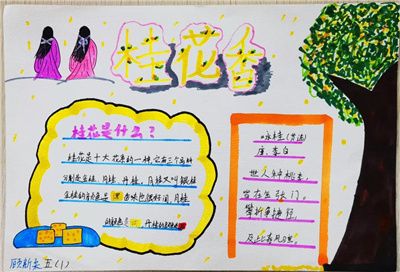 桂花香
桂花是什么？
桂花是十大花香的一种，它有三个品种
分别是金桂，月桂，丹桂，月桂又叫银桂
金桂的颜色是 香味也很好闻，月桂
的颜色是 丹桂的颜色是
咏桂
唐，李白
世人种桃李，
皆在金张门。
攀折争捷径，
及此春风暄。
五(1)